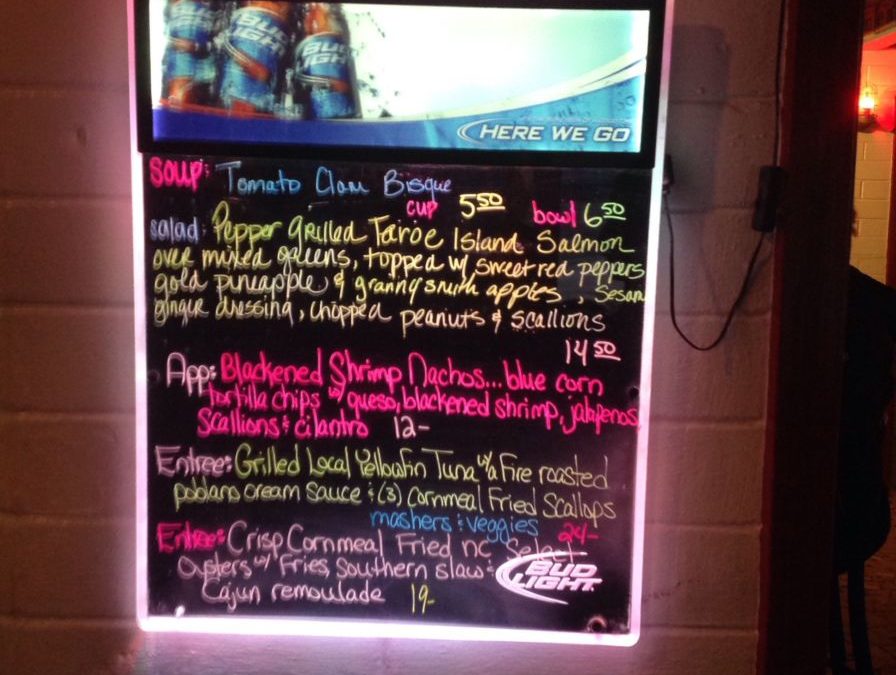 BUD LIGHT
BUD LIGHT
HERE WE GO
Soup: Tomato Clam Bisque
cup 5.50 bowl 6.50
salad: Pepper Grilled Taroe Island Salmon
over mixed greens, topped w/ sweet red peppers
gold pineapple & granny smith apples, Sesam
ginger dressing, chopped peanuts & scallions
14.50
App: Blackened Shrimp Nachos... blue corn
tortilla chips w/ queso, blackened shrimp, jalapenos,
Scallions & cilantro 12-
Entree: Grilled Local Yellowfin Tuna w/ a Fire roasted
poblano cream sauce & (3) Cornmeal Fried Scallops
mashers & veggies 24-
Entree: Crisp Cornmeal Fried NC Select
Oysters w/ Fries, Southern slaw &
Cajun remoulade 19-
BUD LIGHT